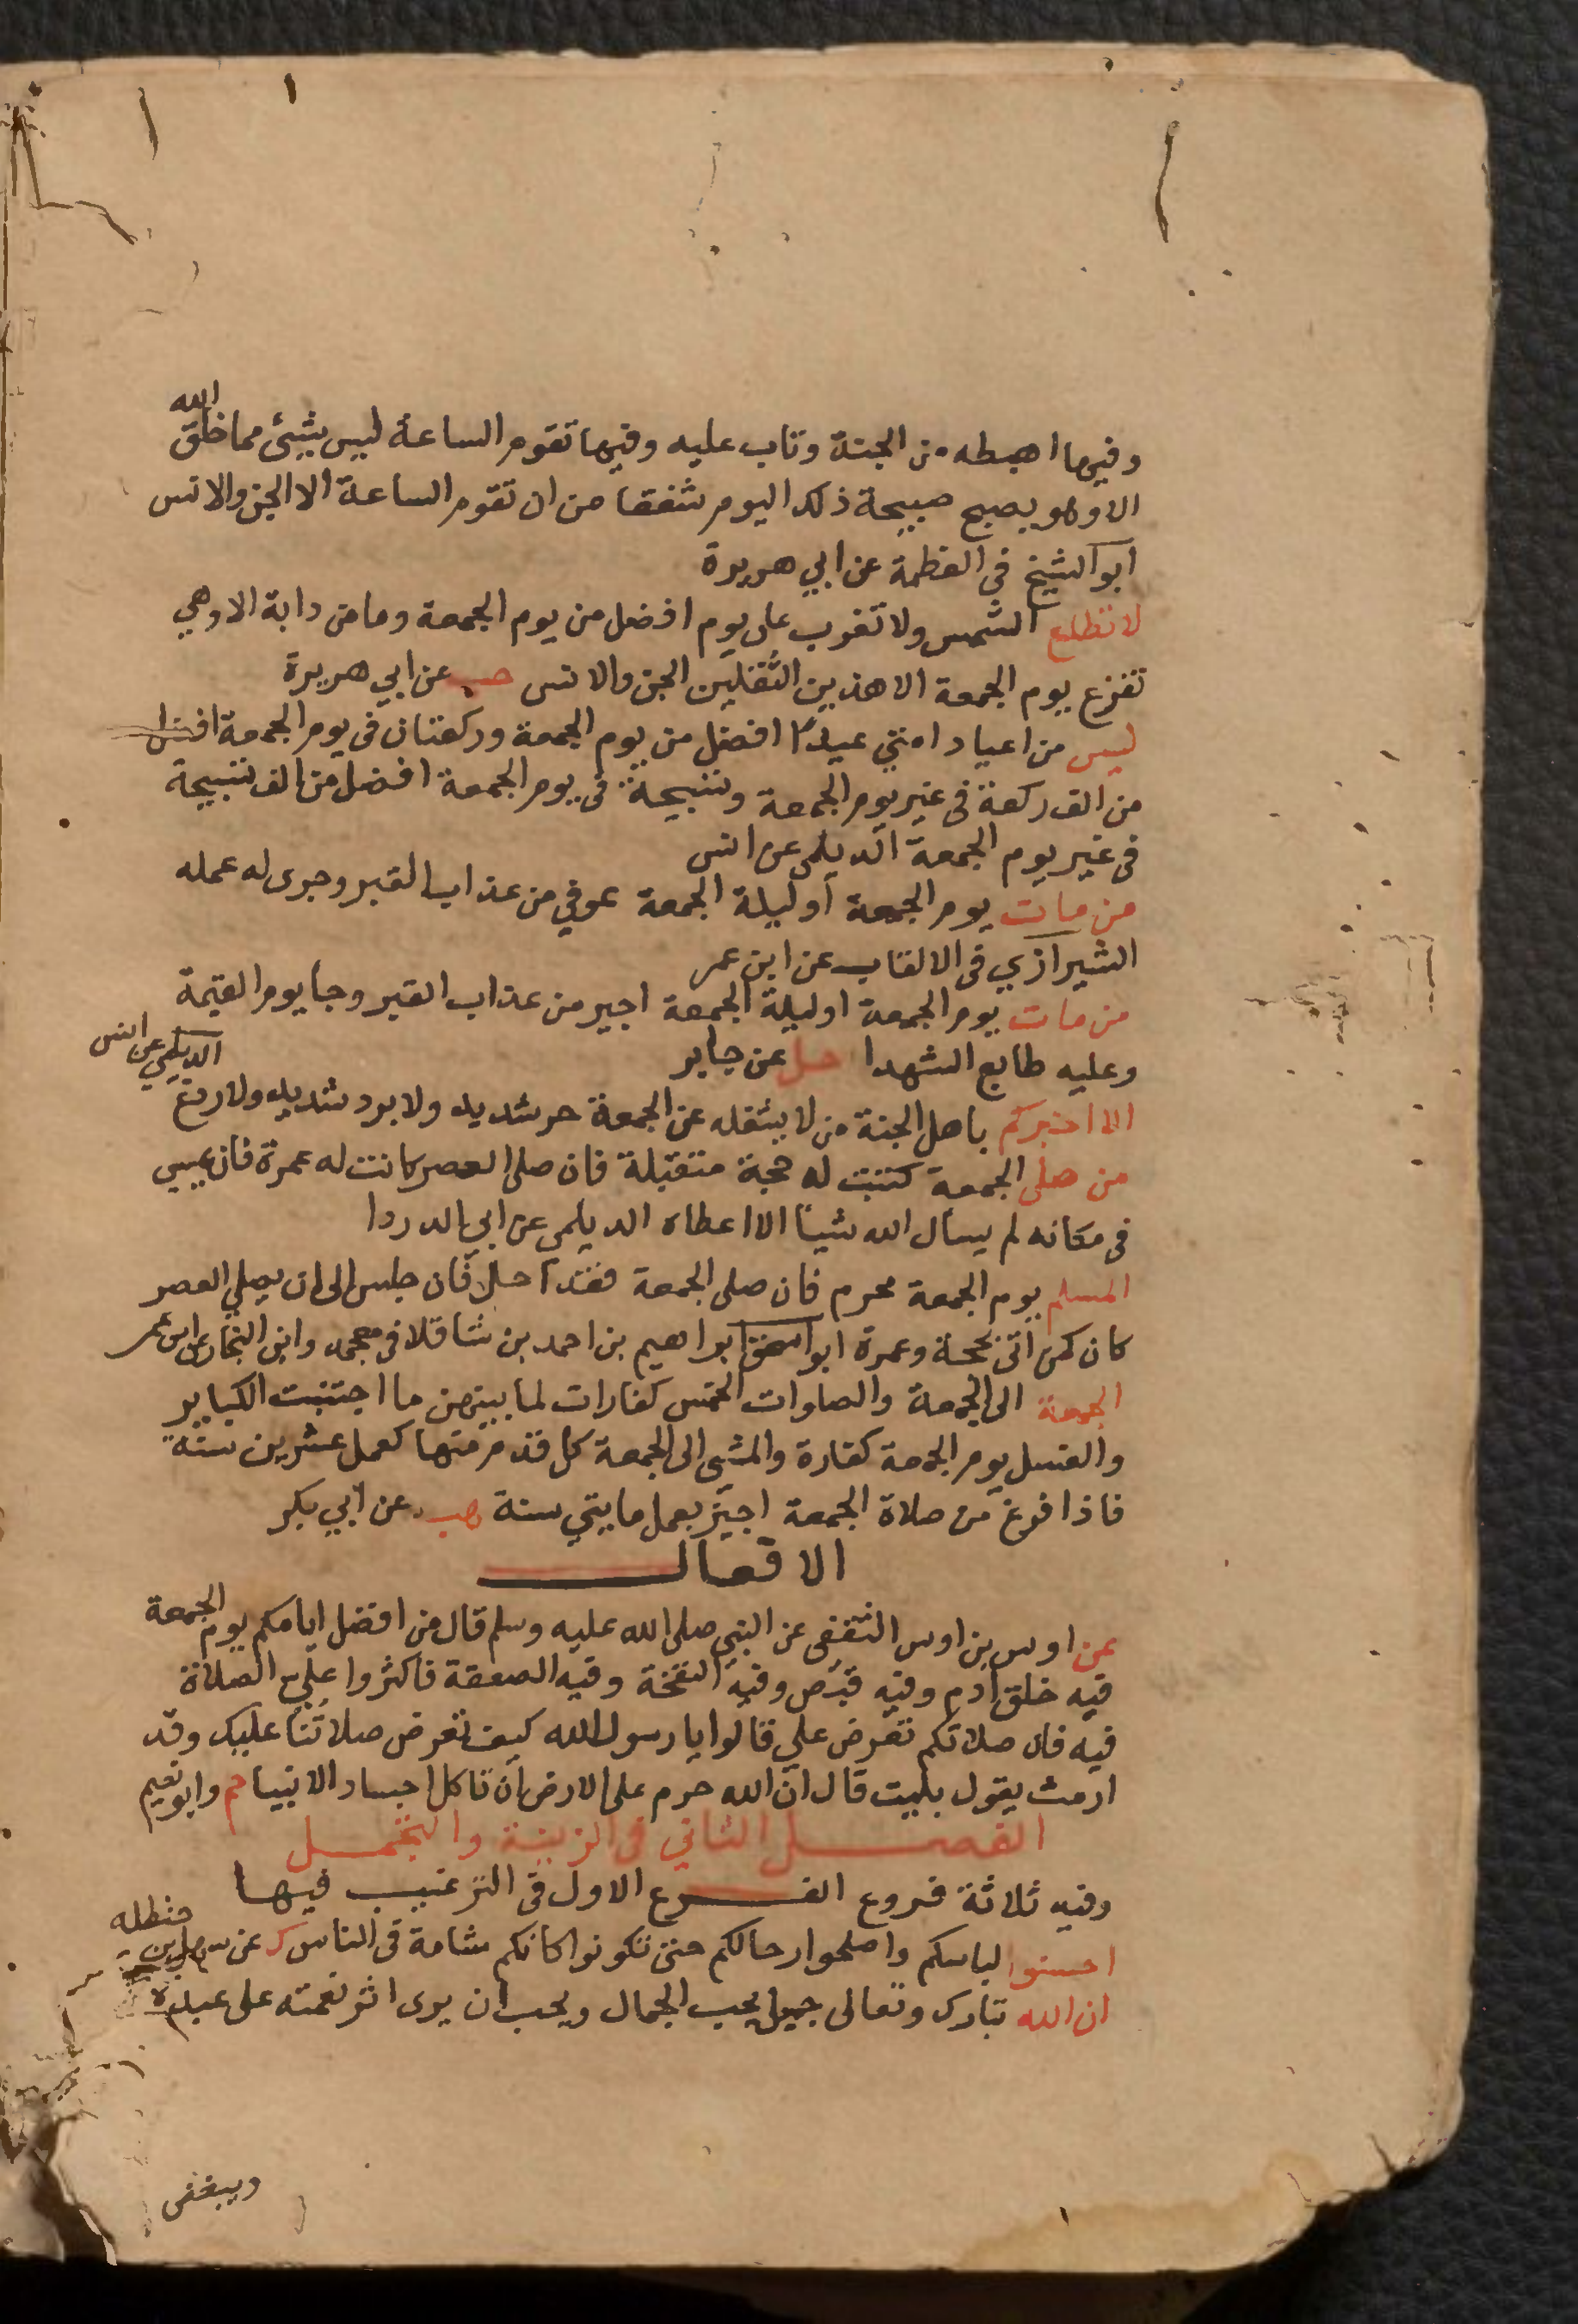 وفيها اهبطه من الجنة وتاب عليه وفيها تقوم الساعة ليس بشيئ مما خلق الله
الا وهو يصبح صبيحة ذلك اليوم شفقا من ان تقوم الساعة الا الجن والانس
ابو الشيخ في العظمة عن ابي هريرة
لا تطلع الشمس ولا تغرب على يوم افضل من يوم الجمعة وما من دابة الا وهي
تفزع يوم الجمعة الا هذين الثقلين الجن والانس حب عن ابي هريرة
ليس من اعياد امتي عيدًا افضل من يوم الجمعة وركعتان في يوم الجمعة افضل
من الف ركعة في غير يوم الجمعة وتسبيحة في يوم الجمعة افضل من الف تسبيحة
في غير يوم الجمعة الديلمى عن انس
من مات يوم الجمعة او ليلة الجمعة عوفي من عذاب القبر وجرى له عمله
الشيرازي في الالقاب عن ابن عمر
من مات يوم الجمعة او ليلة الجمعة اجير من عذاب القبر وجا يوم القيمة
وعليه طابع الشهدا حل عن جابر
الا اخبركم باهل الجنة من لا يشغله عن الجمعة حر شديد ولا برد شديد ولا ردغ الديلمي عن انس
من صلى الجمعة كتبت له حجة متقبلة فان صلى العصر كانت له عمرة فان يمسي
في مكانه لم يسأل الله شيئا الا اعطاه الديلمى عن ابي الدردا
المسلم يوم الجمعة محرم فان صلى الجمعة فقد احل فان جلس الى ان يصلي العصر
كان كمن اتى بحجة وعمرة ابو اسحق ابراهيم بن احمد بن شاقلا في معجمه وابن النجار عن ابن عمر
الجمعة الى الجمعة والصلوات الخمس كفارات لما بينهن ما اجتنبت الكباير
والغسل يوم الجمعة كفارة والمشي الى الجمعة كل قدم منها كعمل عشرين سنة
فاذا فرغ من صلاة الجمعة اجيز بعمل مايتي سنة هب عن ابي بكر
الافعال
عن اوس بن اوس الثقفى عن النبي صلى الله عليه وسلم قال من افضل ايامكم يوم الجمعة
فيه خلق ادم وفيه قبض وفيه النفخة وفيه الصعقة فاكثروا علي الصلاة
فيه فان صلاتكم تعرض علي قالوا يا رسول الله كيف تعرض صلاتنا عليك وقد
ارمت يقول بليت قال ان الله حرم على الارض ان تاكل اجساد الانبيا حم وابو نعيم
الفصل الثاني في الزينة والتجمل
وفيه ثلاثة فروع الفرع الاول في الترغيب فيها
احسنوا لباسكم واصلحوا رحالكم حتى تكونوا كانكم شامة في الناس ك عن سهل بن حنظله
ان الله تبارك وتعالى جميل يحب الجمال ويحب ان يرى اثر نعمته على عبده
ويبغض